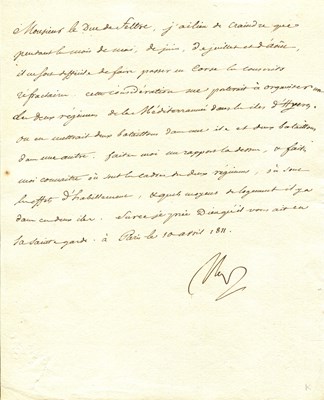 Monsieur le Duc de Feltre, j'ai lieu de craindre que
pendant le mois de mai, de juin, de juillet et d'août,
il ne soit difficile de faire passer en Corse les conscrits
réfractaires. cette considération me porterait à organiser
les deux régimens de la Méditerranée dans les îles d'Hyères.
on en mettrait deux bataillons dans une île et deux bataillons
dans une autre. faites moi un rapport là dessus, & faites
moi connaitre où sont les cadres des deux régimens, où sont
les effets d'habillement, & quels moyens de logement il y a
dans ces deux îles. Sur ce je prie Dieu qu'il vous ait en
sa sainte garde. à Paris le 10 avril 1811.